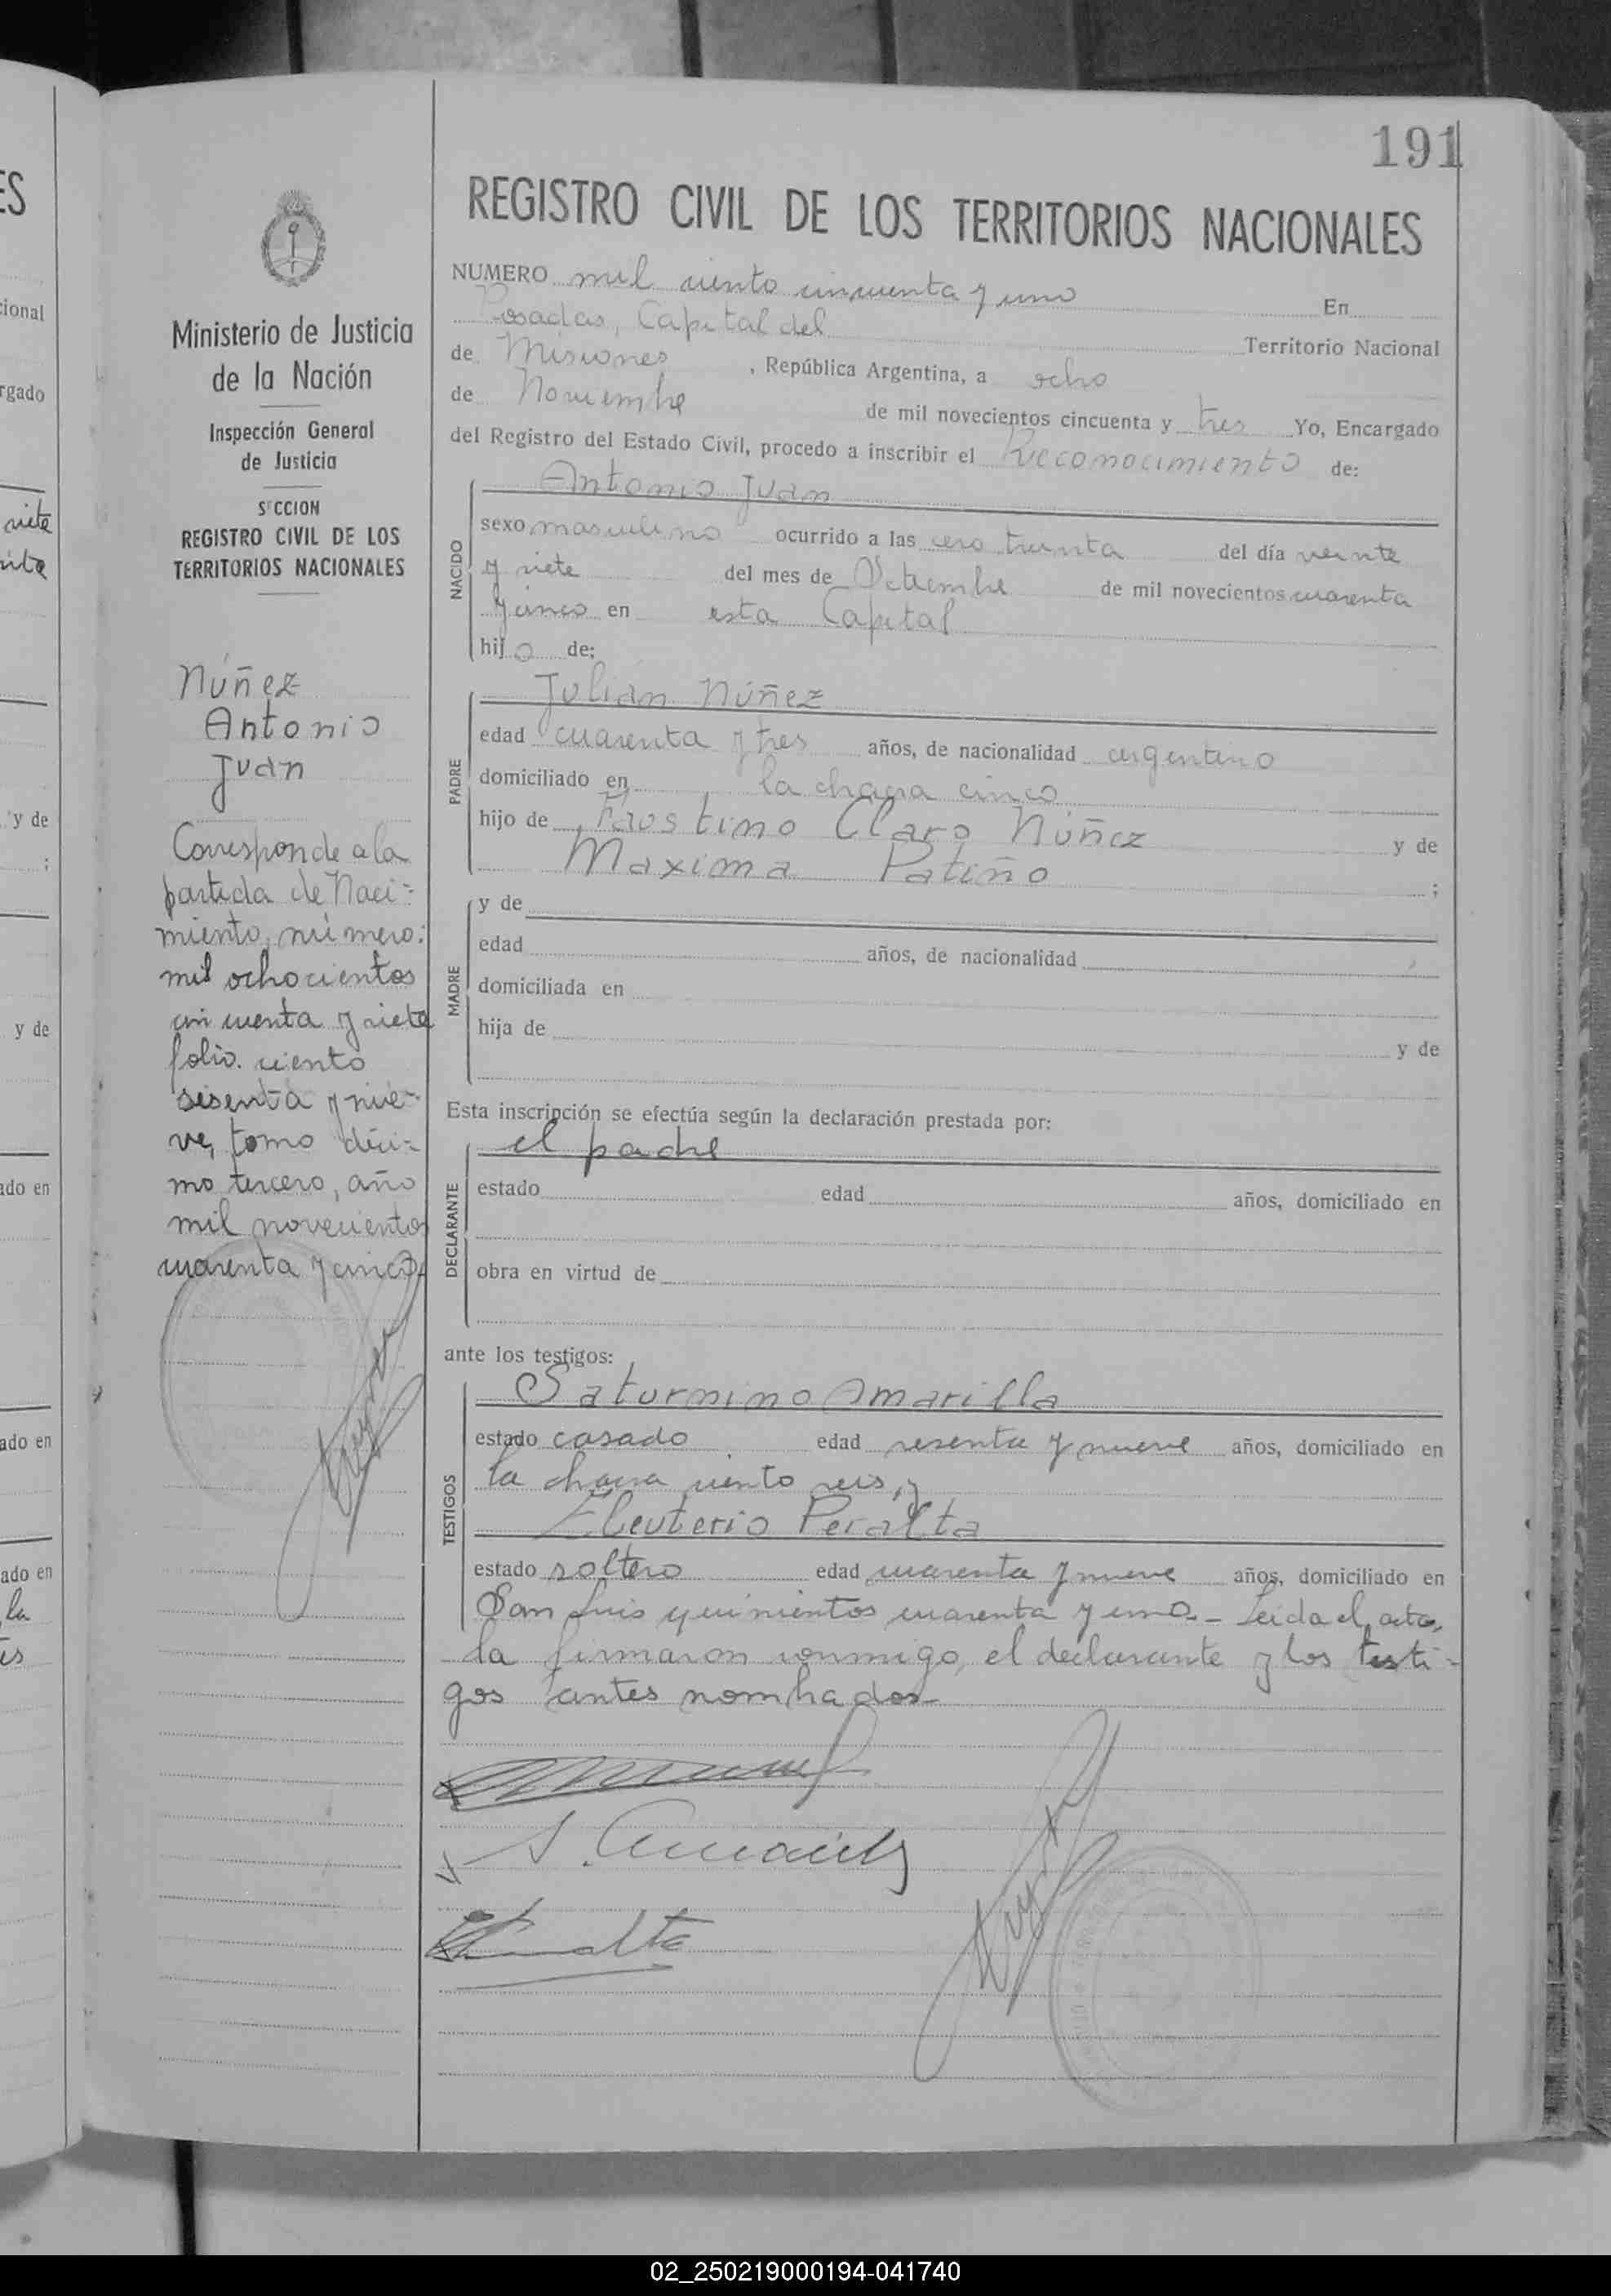 191
REGISTRO CIVIL DE LOS TERRITORIOS NACIONALES
NUMERO mil ciento cincuenta y uno En
Posadas, Capital del Territorio Nacional
de Misiones, República Argentina, a ocho
de Noviembre de mil novecientos cincuenta y tres Yo, Encargado
del Registro del Estado Civil, procedo a inscribir el Reconocimiento de:
Antonio Juan
NACIDO
sexo masculino ocurrido a las cero treinta del día veinte
y siete del mes de Setiembre de mil novecientos cuarenta
y cinco en esta Capital
hijo de:
Julián Núñez
PADRE
edad cuarenta y tres años, de nacionalidad argentino
domiciliado en la chacra cinco
hijo de Faustino Claro Núñez y de
Maxima Patiño ;
MADRE
y de
edad años, de nacionalidad
domiciliada en
hija de y de
Esta inscripción se efectúa según la declaración prestada por:
el padre
DECLARANTE
estado edad años, domiciliado en
obra en virtud de
ante los testigos:
Saturnino Amarilla
TESTIGOS
estado casado edad sesenta y nueve años, domiciliado en
la chacra ciento seis, y
Eleuterio Peralta
estado soltero edad cuarenta y nueve años, domiciliado en
San Luis quinientos cuarenta y uno.- Leída el acta,
la firmaron conmigo, el declarante y los testi-
gos antes nombrados-
Ministerio de Justicia
de la Nación
Inspección General
de Justicia
SECCION
REGISTRO CIVIL DE LOS
TERRITORIOS NACIONALES
Núñez
Antonio
Juan
Corresponde a la
partida de Naci-
miento, número:
mil ochocientos
cincuenta y siete
folio. ciento
sesenta y nue-
ve, tomo déci-
mo tercero, año
mil novecientos
cuarenta y cinco.
ES
cional
rgado
siete
y de
;
y de
ado en
ado en
ado en
la
02_250219000194-041740